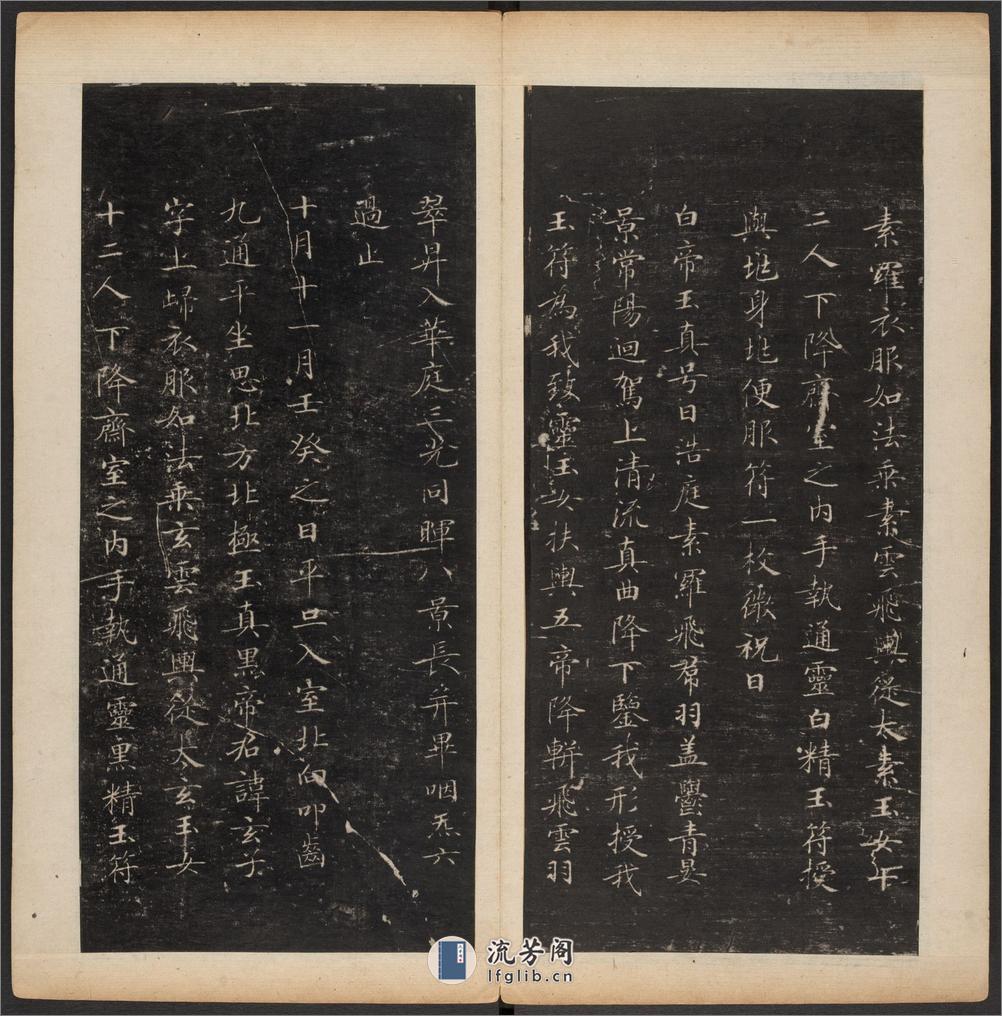 素羅衣服如法乘素雲飛輿從太素玉女十
二人下降齋室之內手執通靈白精玉符授
與地身地便服符一枚微祝曰
白帝玉真号曰浩庭素羅飛帬羽盖欝青晏
景常陽迴駕上清流真曲降下鑒我形授我
玉符為我致靈玉女扶輿五帝降軿飛雲羽
翠昇入華庭三光同暉八景長并畢咽炁六
過止
十月十一月壬癸之日平旦入室北向叩齒
九通平坐思北方北極玉真黑帝君諱玄子
字上歸衣服如法乘玄雲飛輿從太玄玉女
十二人下降齋室之內手執通靈黑精玉符
流芳阁
lfglib.cn